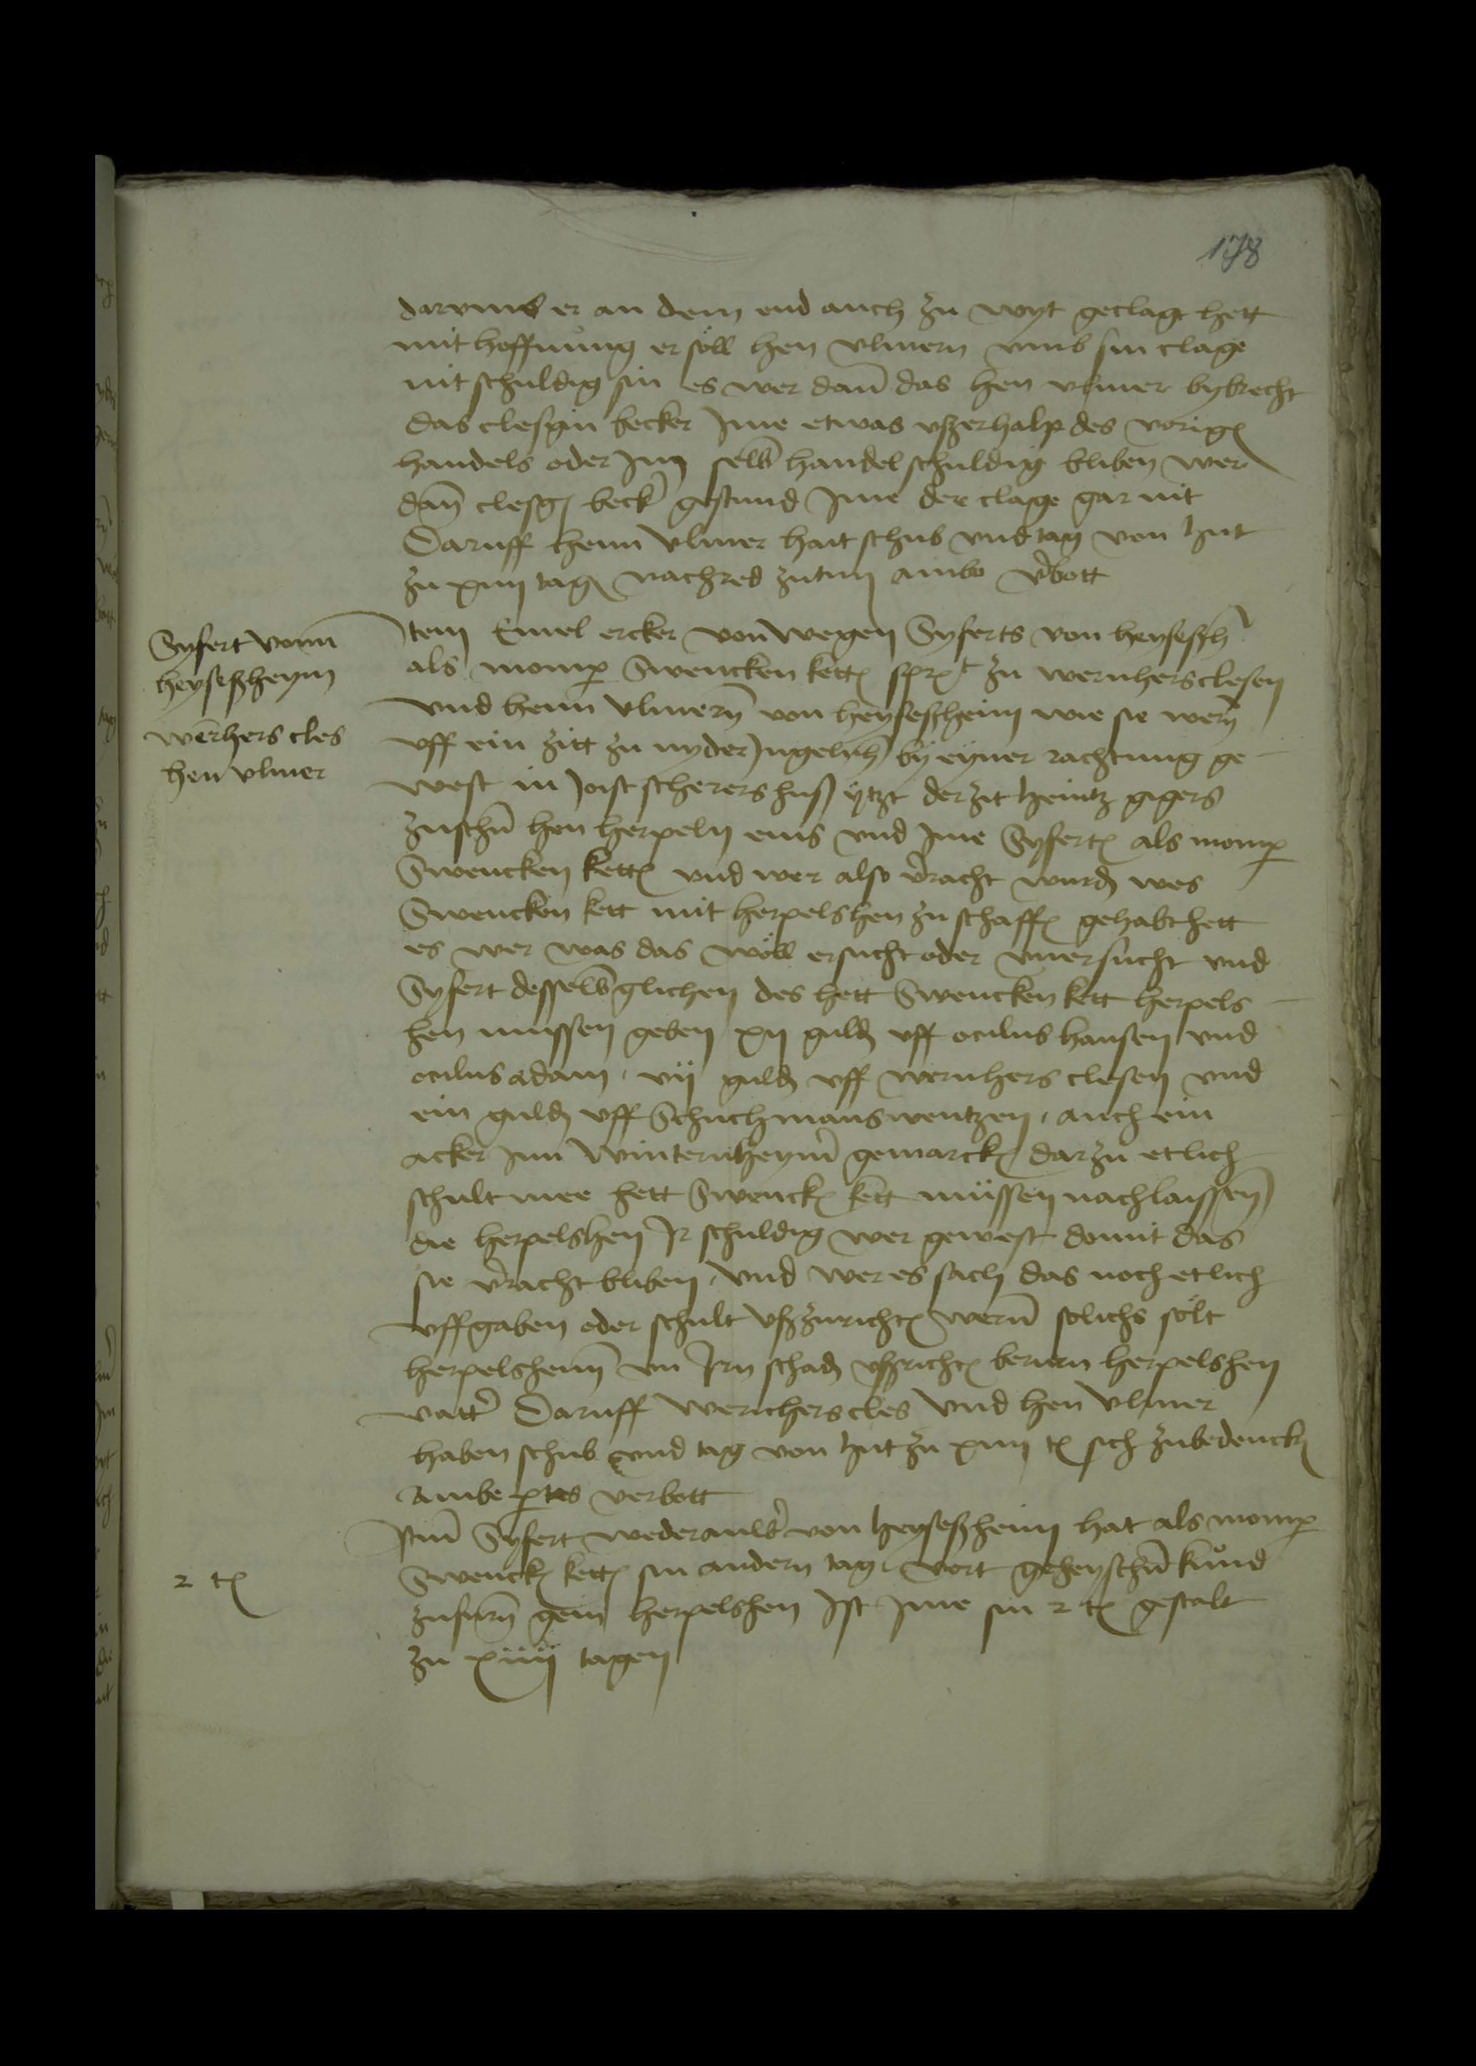 178
darvmb er an dem end auch zu wyt geclagt hett
mit hoffnůng er söll hen vlmern vmb sin clage
nit schuldig sin es wer dan̄ das hen vlmer bybrecht
das clesgin becker Ime etwas vßerhalp des vorigen
handels oder Im selb̄ handel schuldig bliben wer
dan̄ clesgin becker gestund Ime der clage gar nit
Daruff henn vlmer hait schub vnd tag von hut
zu xiiij tagen nachred zutun ambo verbott
Syfert vonn
heyseßheym
wernhers cles
hen vlmer
Item Emel ercker von wegen Syferts von heyseßh
als momper Swencken ketten sprt zu wernhers clesen
vnd henn vlmern von heyseßheim wie sie wern
vff ein zitt zu nyder Ingelnh by eyner rachtung ge
west in Joist scherers huß ytzt der zit heintz gigers
zuschen hen herpeln eins vnd Ime Syferten als momper
Swencken ketten vnd wer also verracht wurden was
Swencken kett mit herpelshen zu schaffen gehabt hett
es wer was das wöll ersucht oder vnersucht vnd
Syfert desselb̄glichen des hett Swencken kett herpels
hen mussen geben xij gulden vff oculus hansen vnd
oculus adam, vij gulden vff wernhers clesen vnd
ein gulden vff Schuchmans wentzen, auch ein
acker Inn Winternheymer gemarcken darzu etlich
schult mee hett Swencken kett müssen nachlaissen
die herpelshen Ir schuldig wer gewest domit das
sie verracht bliben, vnd wer es sach das noch etlich
vffgaben oder schult vßzurichten wern solichs sölt
herpelshenn on Irn schaden vßrichten berurn herpelshen
vatter Daruff wernhers cles vnd hen vlmer
haben schub vnd tag von hut zu xiiij t sich zubedencken
Ambe partes verbott
2 t
Item Syfert wederauwer von heyseßheim hat als momper
Swencken ketten sin andern tag, vort geheyschen kůnd
zufurn gein herpelshen Ist Ime sin 2 t gestalt
zu xiiij tagen